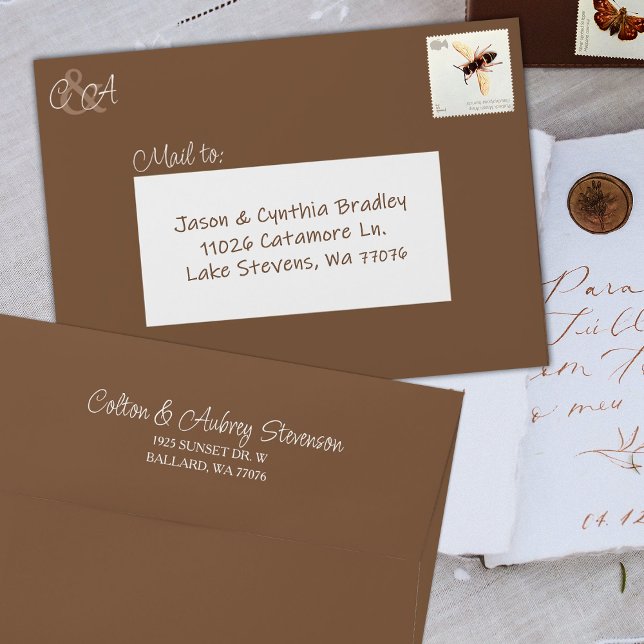 C & A
Mail to:
Jason & Cynthia Bradley
11026 Catamore Ln.
Lake Stevens, Wa 77076
Colton & Aubrey Stevenson
1925 SUNSET DR. W
BALLARD, WA 77076
Para
om
o meu
04.12